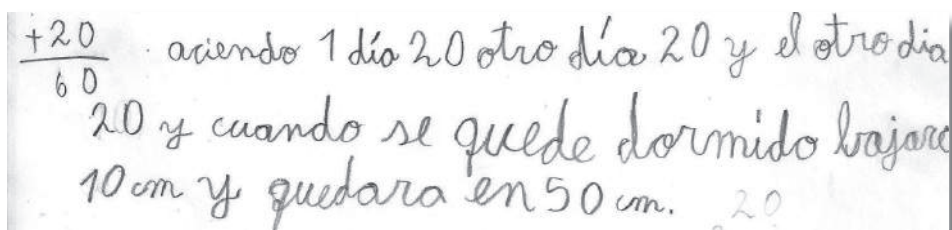 +20
60
aciendo 1 día 20 otro día 20 y el otro dia
20 y cuando se quede dormido bajara
10 cm y quedara en 50 cm.
20